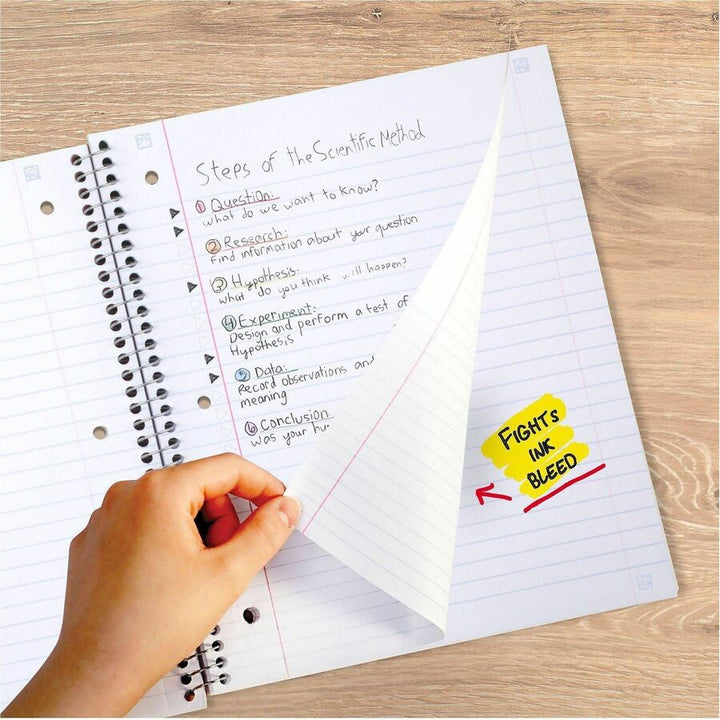 Steps of the Scientific Method
① Question:
what do we want to know?
② Research:
Find information about your question
③ Hypothesis:
what do you think will happen?
④ Experiment:
Design and perform a test of
Hypothesis
⑤ Data:
Record observations and
meaning
⑥ Conclusion:
was your
FIGHTS
INK
BLEED